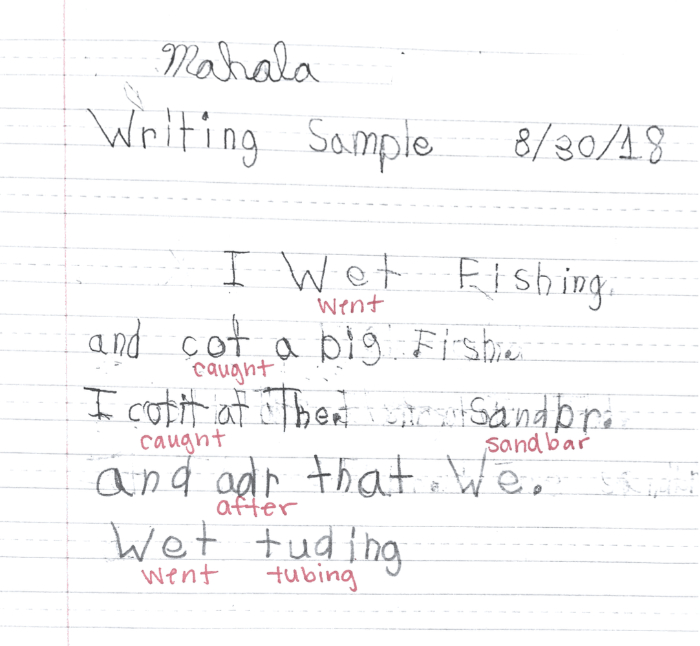 Mahala
Writing Sample 8/30/18
I Wet Fishing.
went
and cot a big Fish.
caught
I cotit at The Sandbr.
caught sandbar
and adr that. We.
after
Wet tuding
went tubing